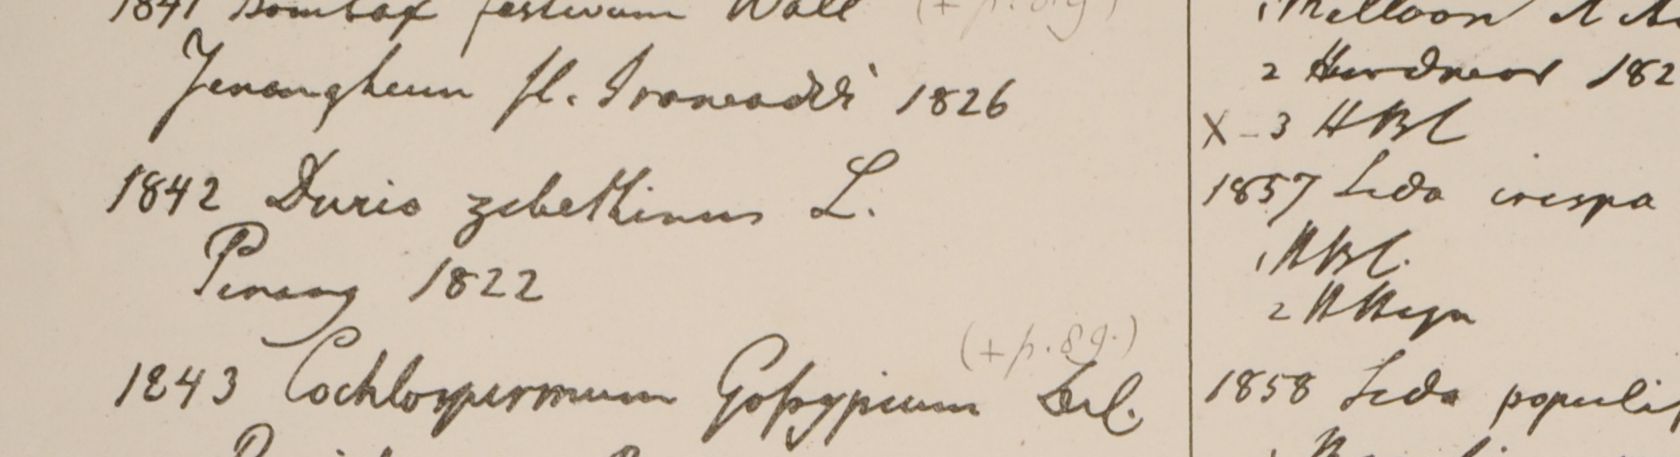 1841 Bombax festivum Wall (+ p. 89)
Jenangheun fl. Irawaddi 1826
1842 Durio zebethinus L.
Penang 1822
(+ p. 89.)
1843 Cochlospermum Goſsypium
2 182
X - 3 HBC
1857 Sida crispa
1 HBC.
2 HHeyn
1858 Sida populif